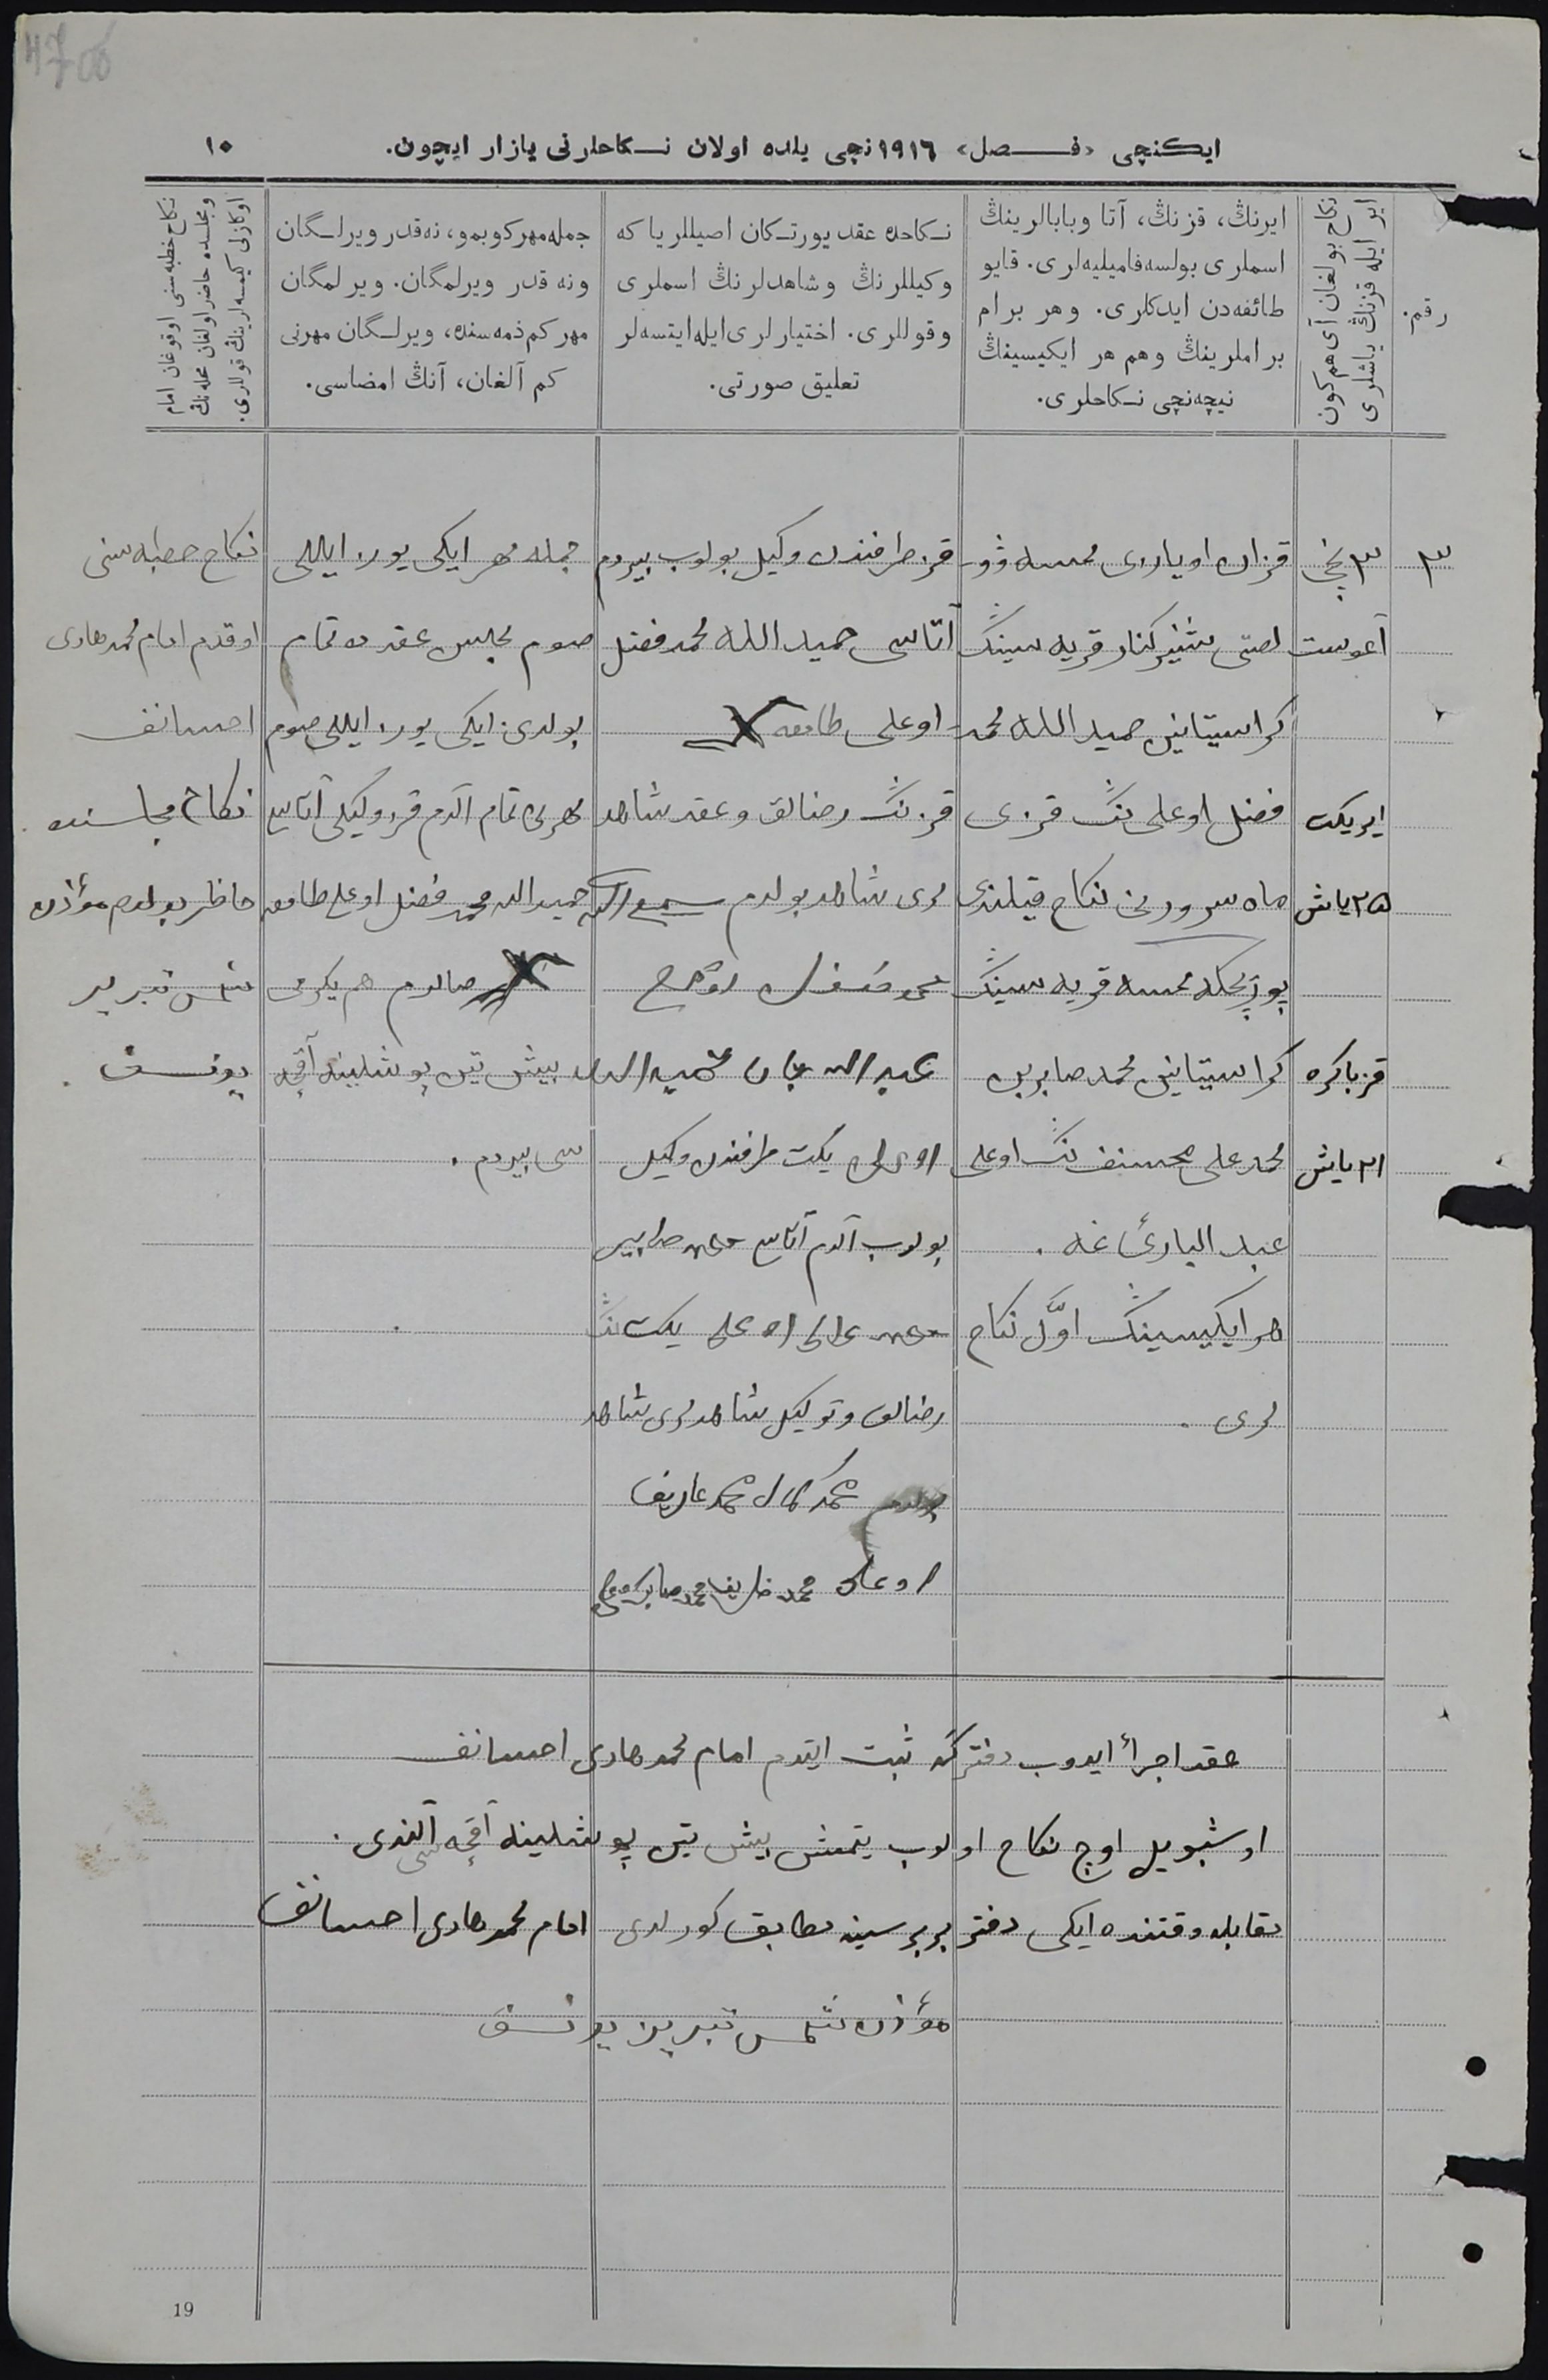 ایکنچی «فصل» ۱۹۱٦نچی یلده اولان نکاحلرنی یازار ایچون.
۱۰
رقم.
نکاح بولغان آی هم کون
ایر ایله قزنڭ یاشلری
ایرنڭ، قزنڭ، آتا وبابالرینڭ
اسملری بولسه فامیلیه‌لری. قایو
طائفه‌دن ایدکلری. وهر برام
براملرینڭ وهم هر ایکیسینڭ
نیچه‌نچی نکاحلری.
نکاحده عقد یورتکان اصیللر یا که
وکیللرنڭ وشاهدلرنڭ اسملری
وقوللری. اختیارلری ایله ایتسه‌لر
تعلیق صورتی.
جمله مهر کوبمو، نه‌قدر ویرلگان
ونه قدر ویرلمگان. ویرلمگان
مهر کم ذمه‌سنده، ویرلگان مهرنی
کم آلغان، آنڭ امضاسی.
نکاح خطبه‌سنی اوقوغان امام
ومجلسده حاضر اولغان محله‌نڭ
اوکازلی کیمسه‌لرینڭ قوللری.
۳
۳ نچی
آغوست
ایر یکت
۲۵ یاش
قز باکره
۲۱ یاش
قزان اویازی
قریه سینڭ
کراستیانین حمید الله محمد
فضل اوغلی نڭ قزی
ماه سرورنی نکاح قیلندی
قریه سینڭ
کراستیانین محمد صابر بن
محمد علی نڭ اوغلی
عبد الباریٔ غه.
هر ایکیسینڭ اوّل نکاح
لری.
قز طرفندن وکیل بولوب بیردم
آتاسی حمید الله محمد فضل
اوغلی طامغه
قزنڭ رضالق وعقد شاهد
لری شاهد بولدم
یکت طرفندن وکیل
بولوب آلدم آتاسی محمد صابر
محمد علی اوغلی یکت نڭ
رضالق وتوکیل شاهدلری شاهد
بولدم محمد کمال محمد عارف
اوغلی
جمله مهر ایکی یوز ایللی
صوم مجلس عقدده تمام
بولدی. ایکی یوز ایللی صوم
مهرنی تمام آلدم قز وکیلی آتاسی
حمید الله محمد فضل اوغلی طامغه
صالدم هم یکرمی
بیش تین پوشلینه آقچه
سی بیردم.
نکاح خطبه سنی
اوقدم امام محمد هادی
احسانف
نکاح مجلسنده
حاظر بولدم مؤذن
شمس تبریز
یونسف
عقد اجرأ ایدوب دفترگه ثبت ایتدم امام محمد هادی احسانف
اوشبو یل اوچ نکاح اولوب یتمش بیش تین پوشلینه آقچه سی آلندی.
مقابله وقتنده ایکی دفتر بربرسینه مطابق کورلدی امام محمد هادی احسانف
مؤذن شمس تبریز یونسف
19